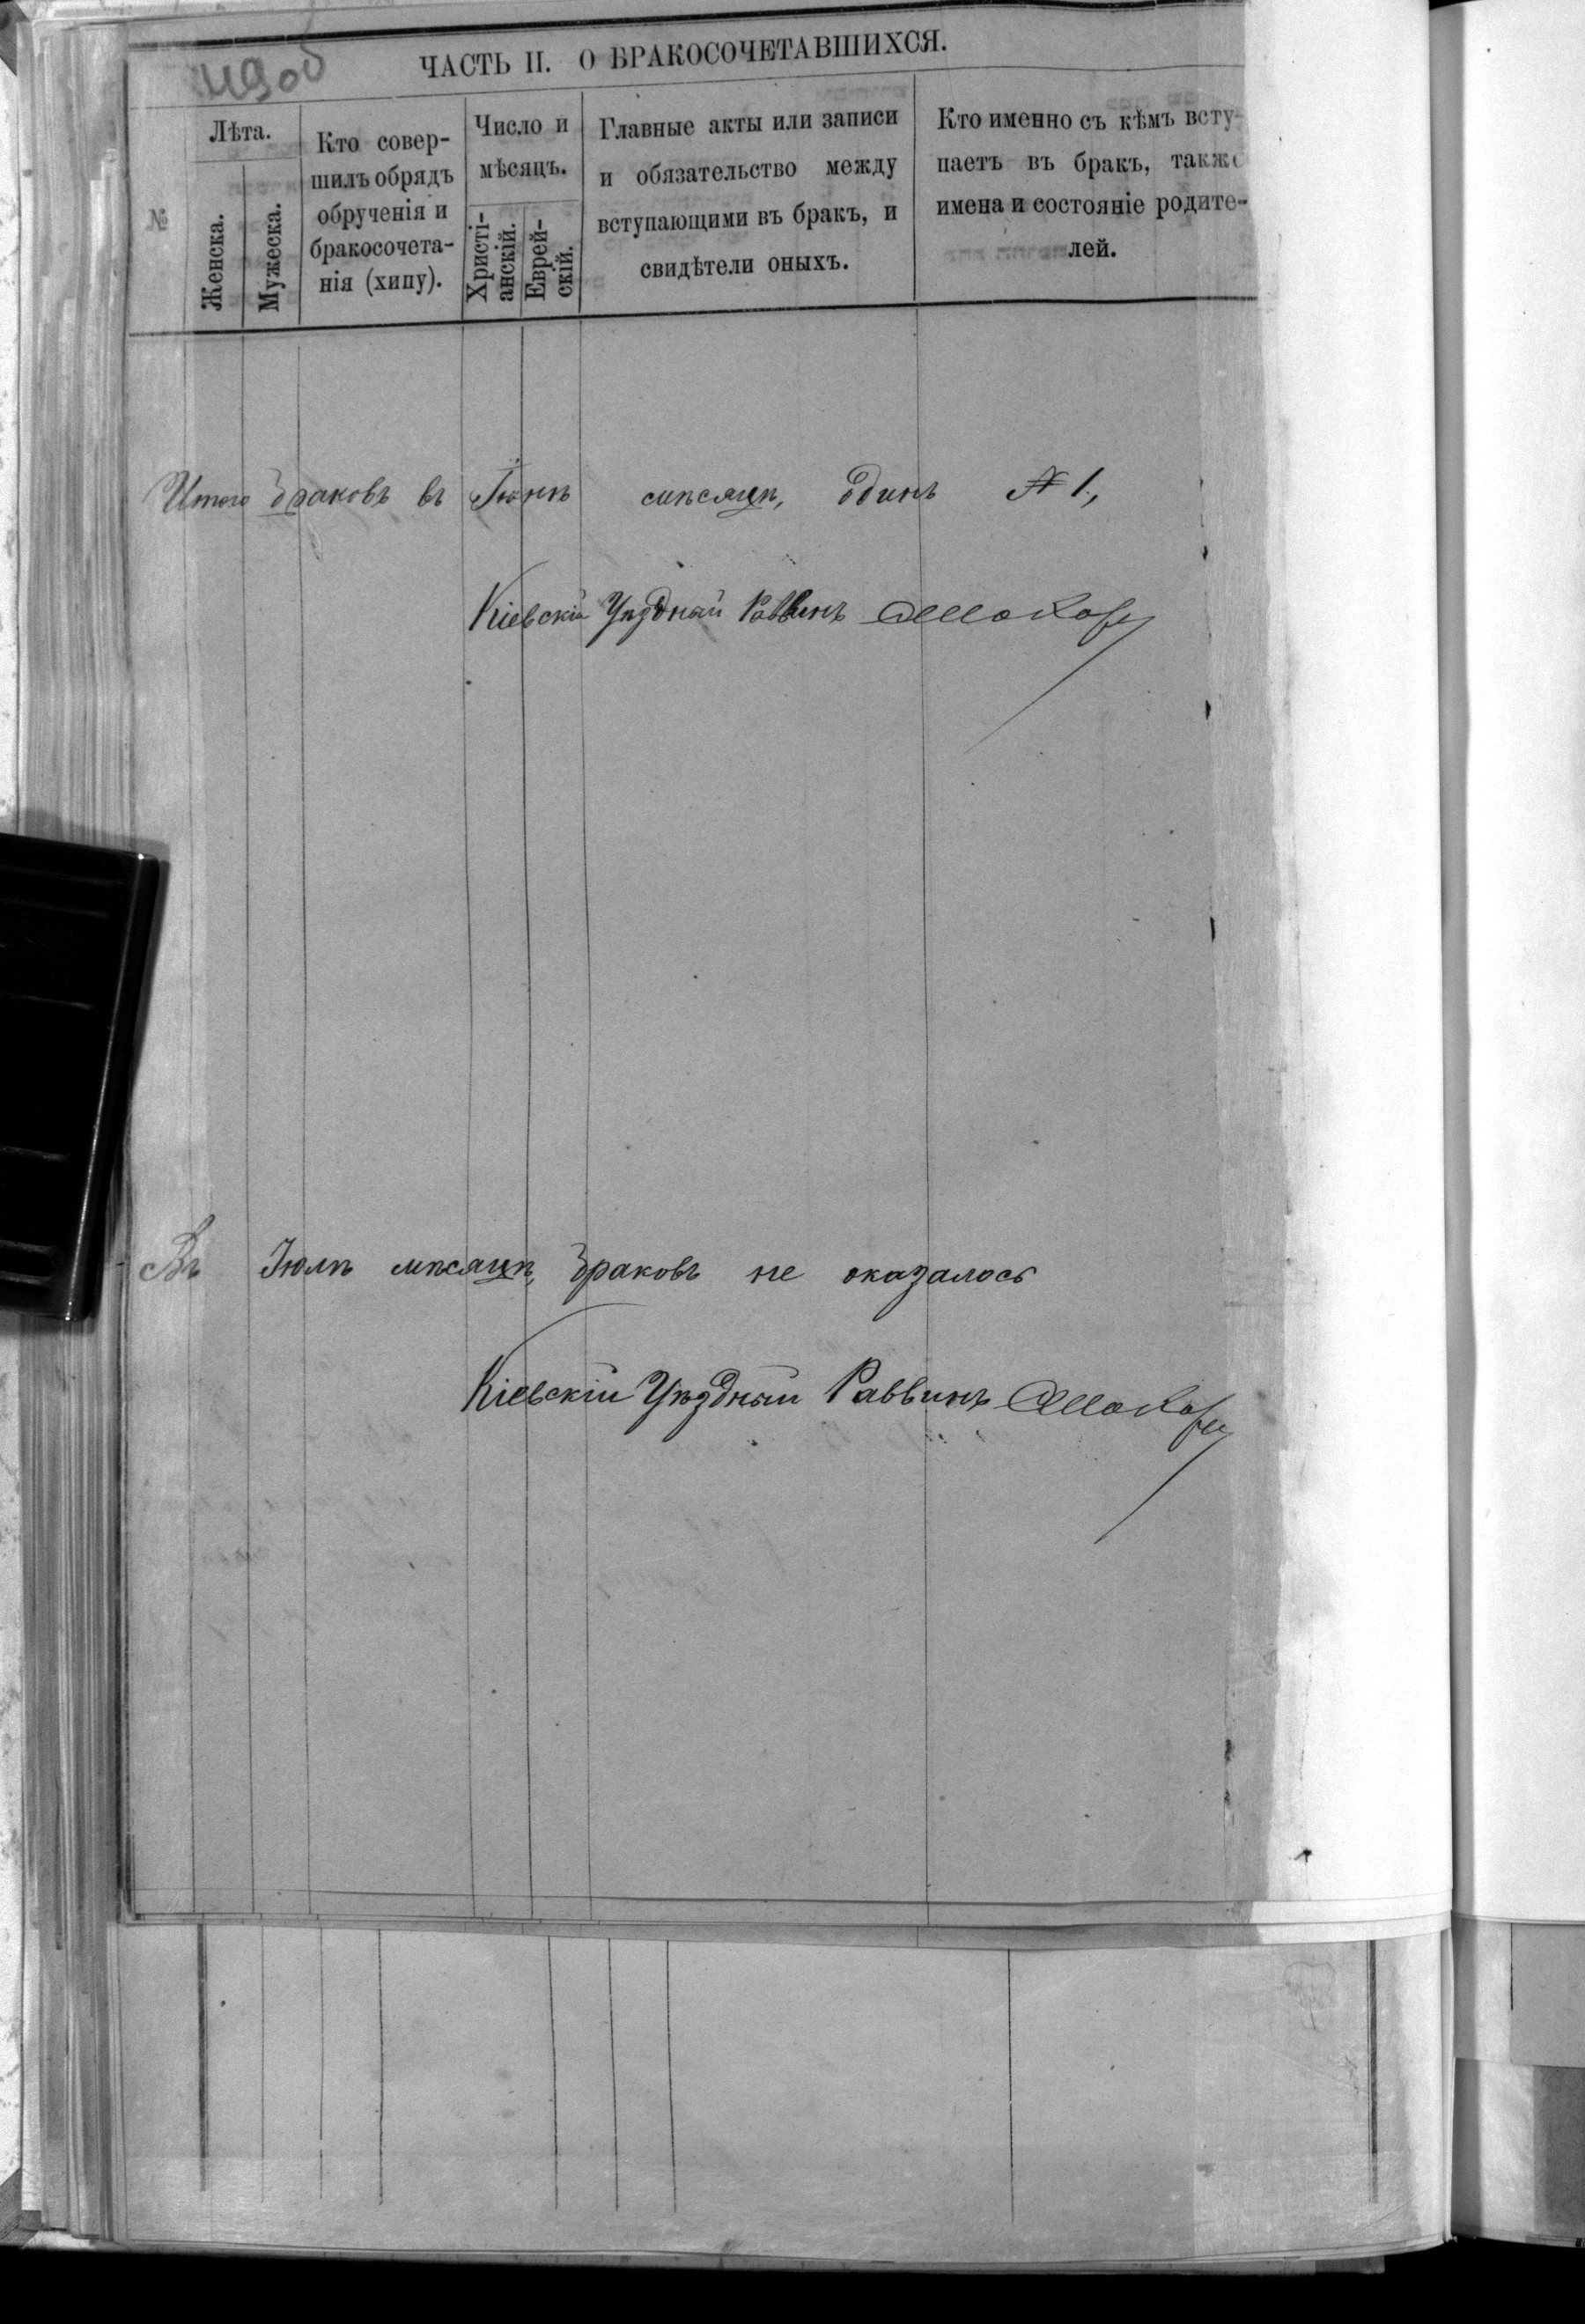 49об
ЧАСТЬ II. О БРАКОСОЧЕТАВШИХСЯ.
№
Лѣта.
Женска.
Мужеска.
Кто совер-
шилъ обрядъ
обрученія и
бракосочета-
нія (хипу).
Число и
мѣсяцъ.
Христі-
анскій.
Еврей-
скій.
Главные акты или записи
и обязательство между
вступающими въ бракъ, и
свидѣтели оныхъ.
Кто именно съ кѣмъ всту-
паетъ въ бракъ, также
имена и состояніе родите-
лей.
Итого браковъ въ Іюнѣ мѣсяцѣ, одинъ № 1,
Кіевскій Уѣздный Раввинъ
Въ Іюлѣ мѣсяцѣ, браковъ не оказалось
Кіевскій Уѣздный Раввинъ